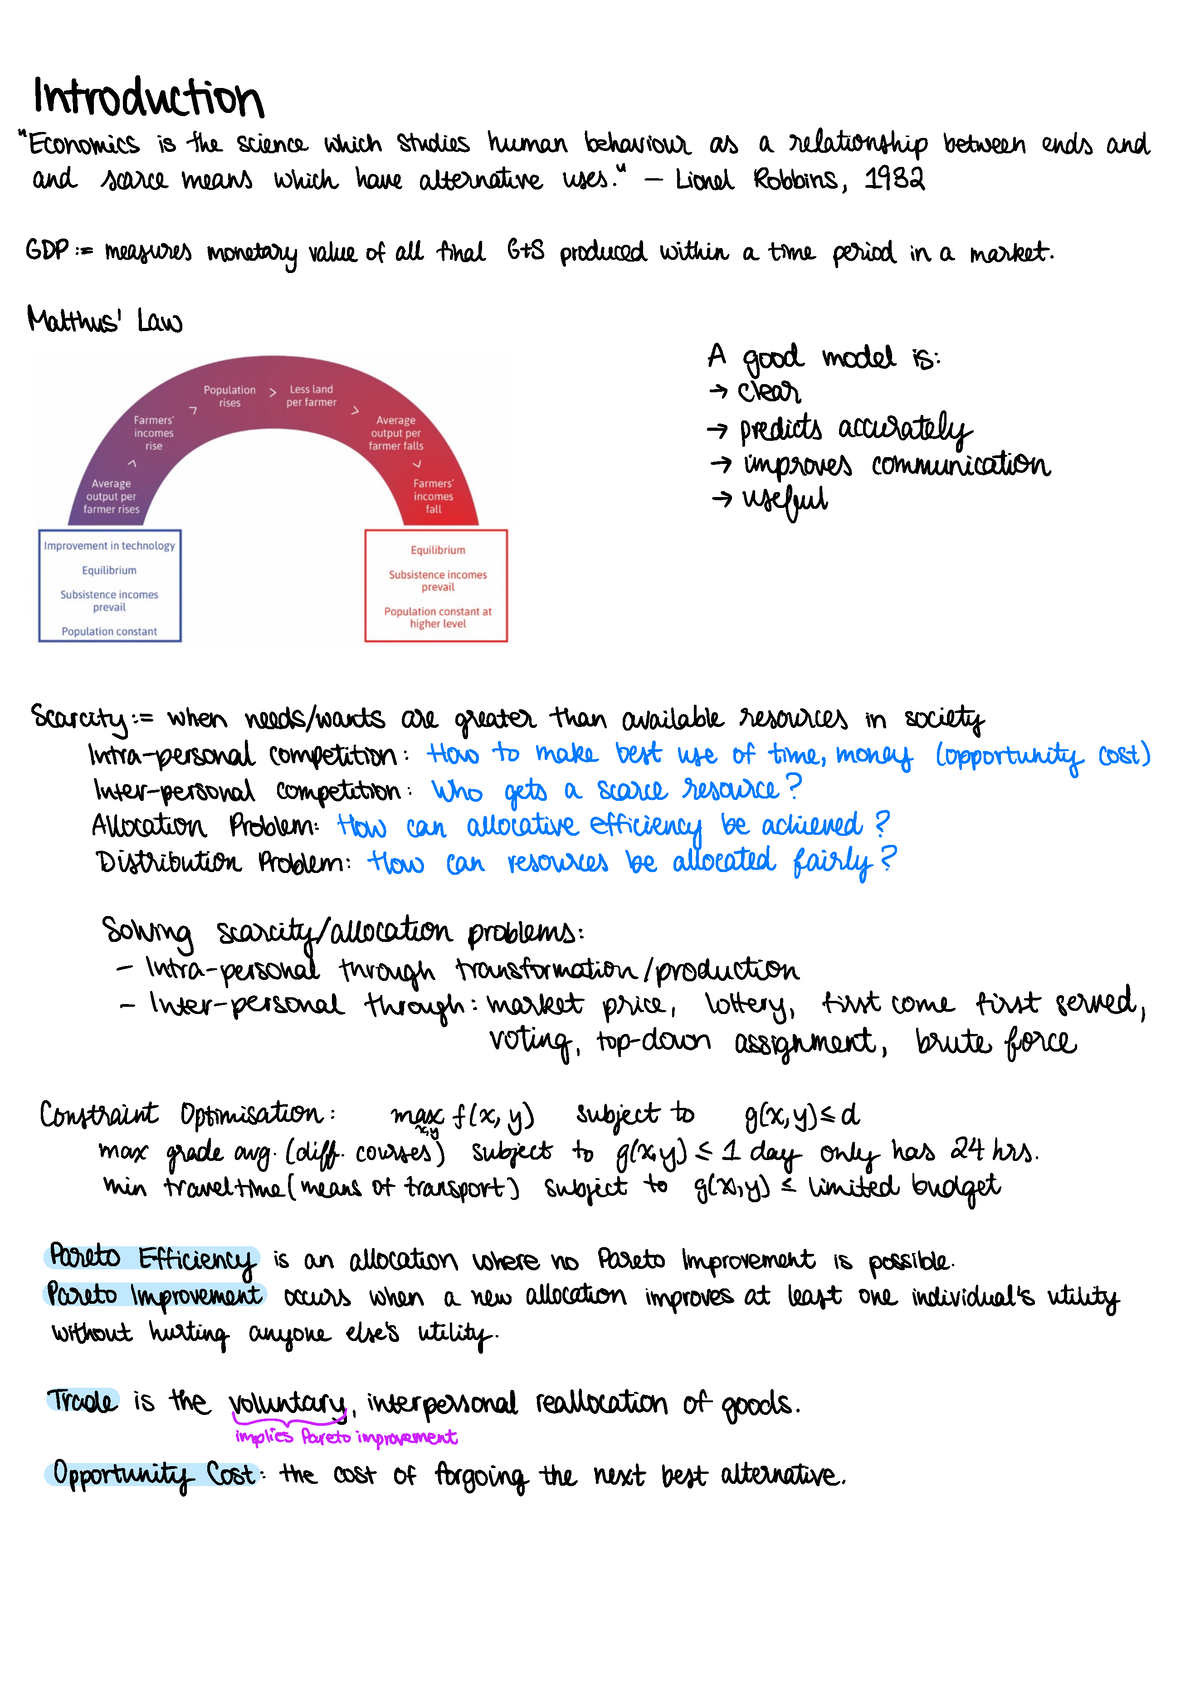 Introduction
"Economics is the science which studies human behaviour as a relationship between ends and
and scarce means which have alternative uses." – Lionel Robbins, 1932
GDP := measures monetary value of all final G+S produced within a time period in a market.
Malthus' Law
Population rises > Less land per farmer >
Farmers' incomes rise >
Average output per farmer falls >
Average output per farmer rises >
Farmers' incomes fall
Improvement in technology
Equilibrium
Subsistence incomes
prevail
Population constant
Equilibrium
Subsistence incomes
prevail
Population constant at
higher level
A good model is:
→ clear
→ predicts accurately
→ improves communication
→ useful
Scarcity := when needs/wants are greater than available resources in society
Intra-personal competition: How to make best use of time, money (opportunity cost)
Inter-personal competition: Who gets a scarce resource?
Allocation Problem: How can allocative efficiency be achieved?
Distribution Problem: How can resources be allocated fairly?
Solving scarcity/allocation problems:
– Intra-personal through transformation/production
– Inter-personal through: market price, lottery, first come first served,
voting, top-down assignment, brute force
Constraint Optimisation: max f(x, y) subject to g(x,y) ≤ d
x,y
max grade avg. (diff. courses) subject to g(x,y) ≤ 1 day only has 24 hrs.
min traveltime (means of transport) subject to g(x,y) ≤ limited budget
Pareto Efficiency is an allocation where no Pareto Improvement is possible.
Pareto Improvement occurs when a new allocation improves at least one individual's utility
without hurting anyone else's utility.
Trade is the voluntary, interpersonal reallocation of goods.
implies Pareto improvement
Opportunity Cost: the cost of forgoing the next best alternative.